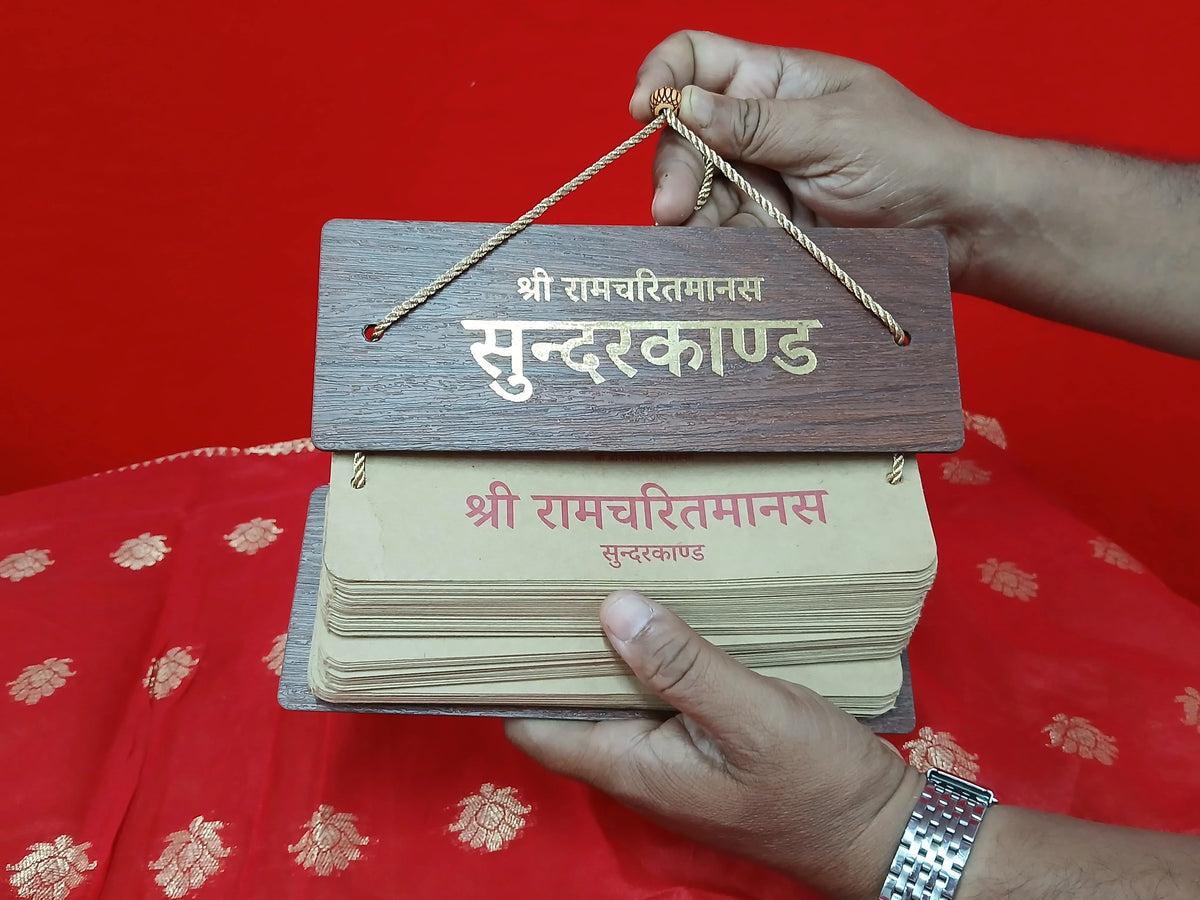 श्री रामचरितमानस
सुन्दरकाण्ड
श्री रामचरितमानस
सुन्दरकाण्ड